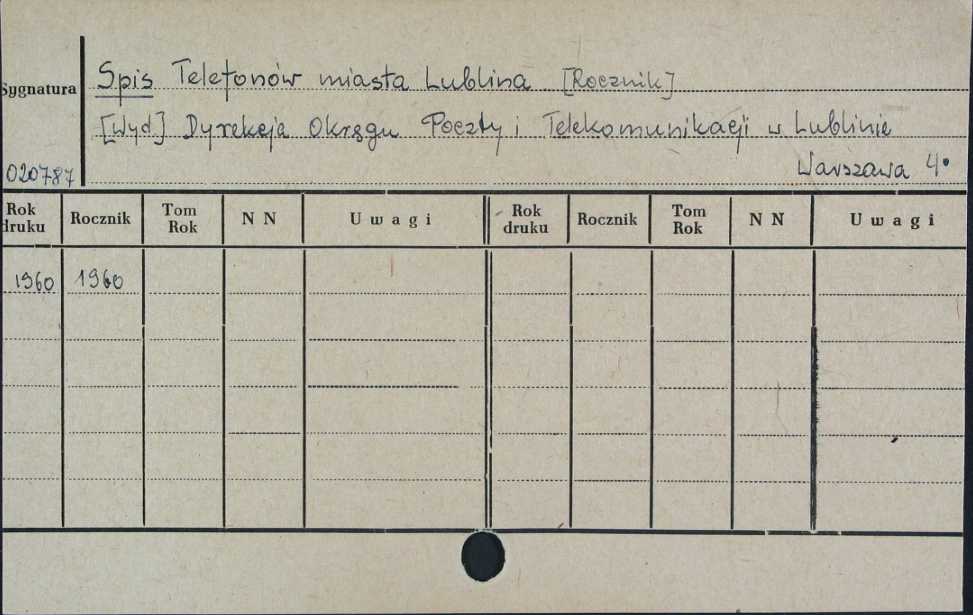 Spis Telefonów miasta Lublina [Rocznik]
Sygnatura
[Wyd] Dyrekcja Okręgu Poczty i Telekomunikacji w Lublinie
020787 Warszawa 4°
Rok druku Rocznik Tom Rok N N Uwagi Rok druku Rocznik Tom Rok N N Uwagi
1960 1960